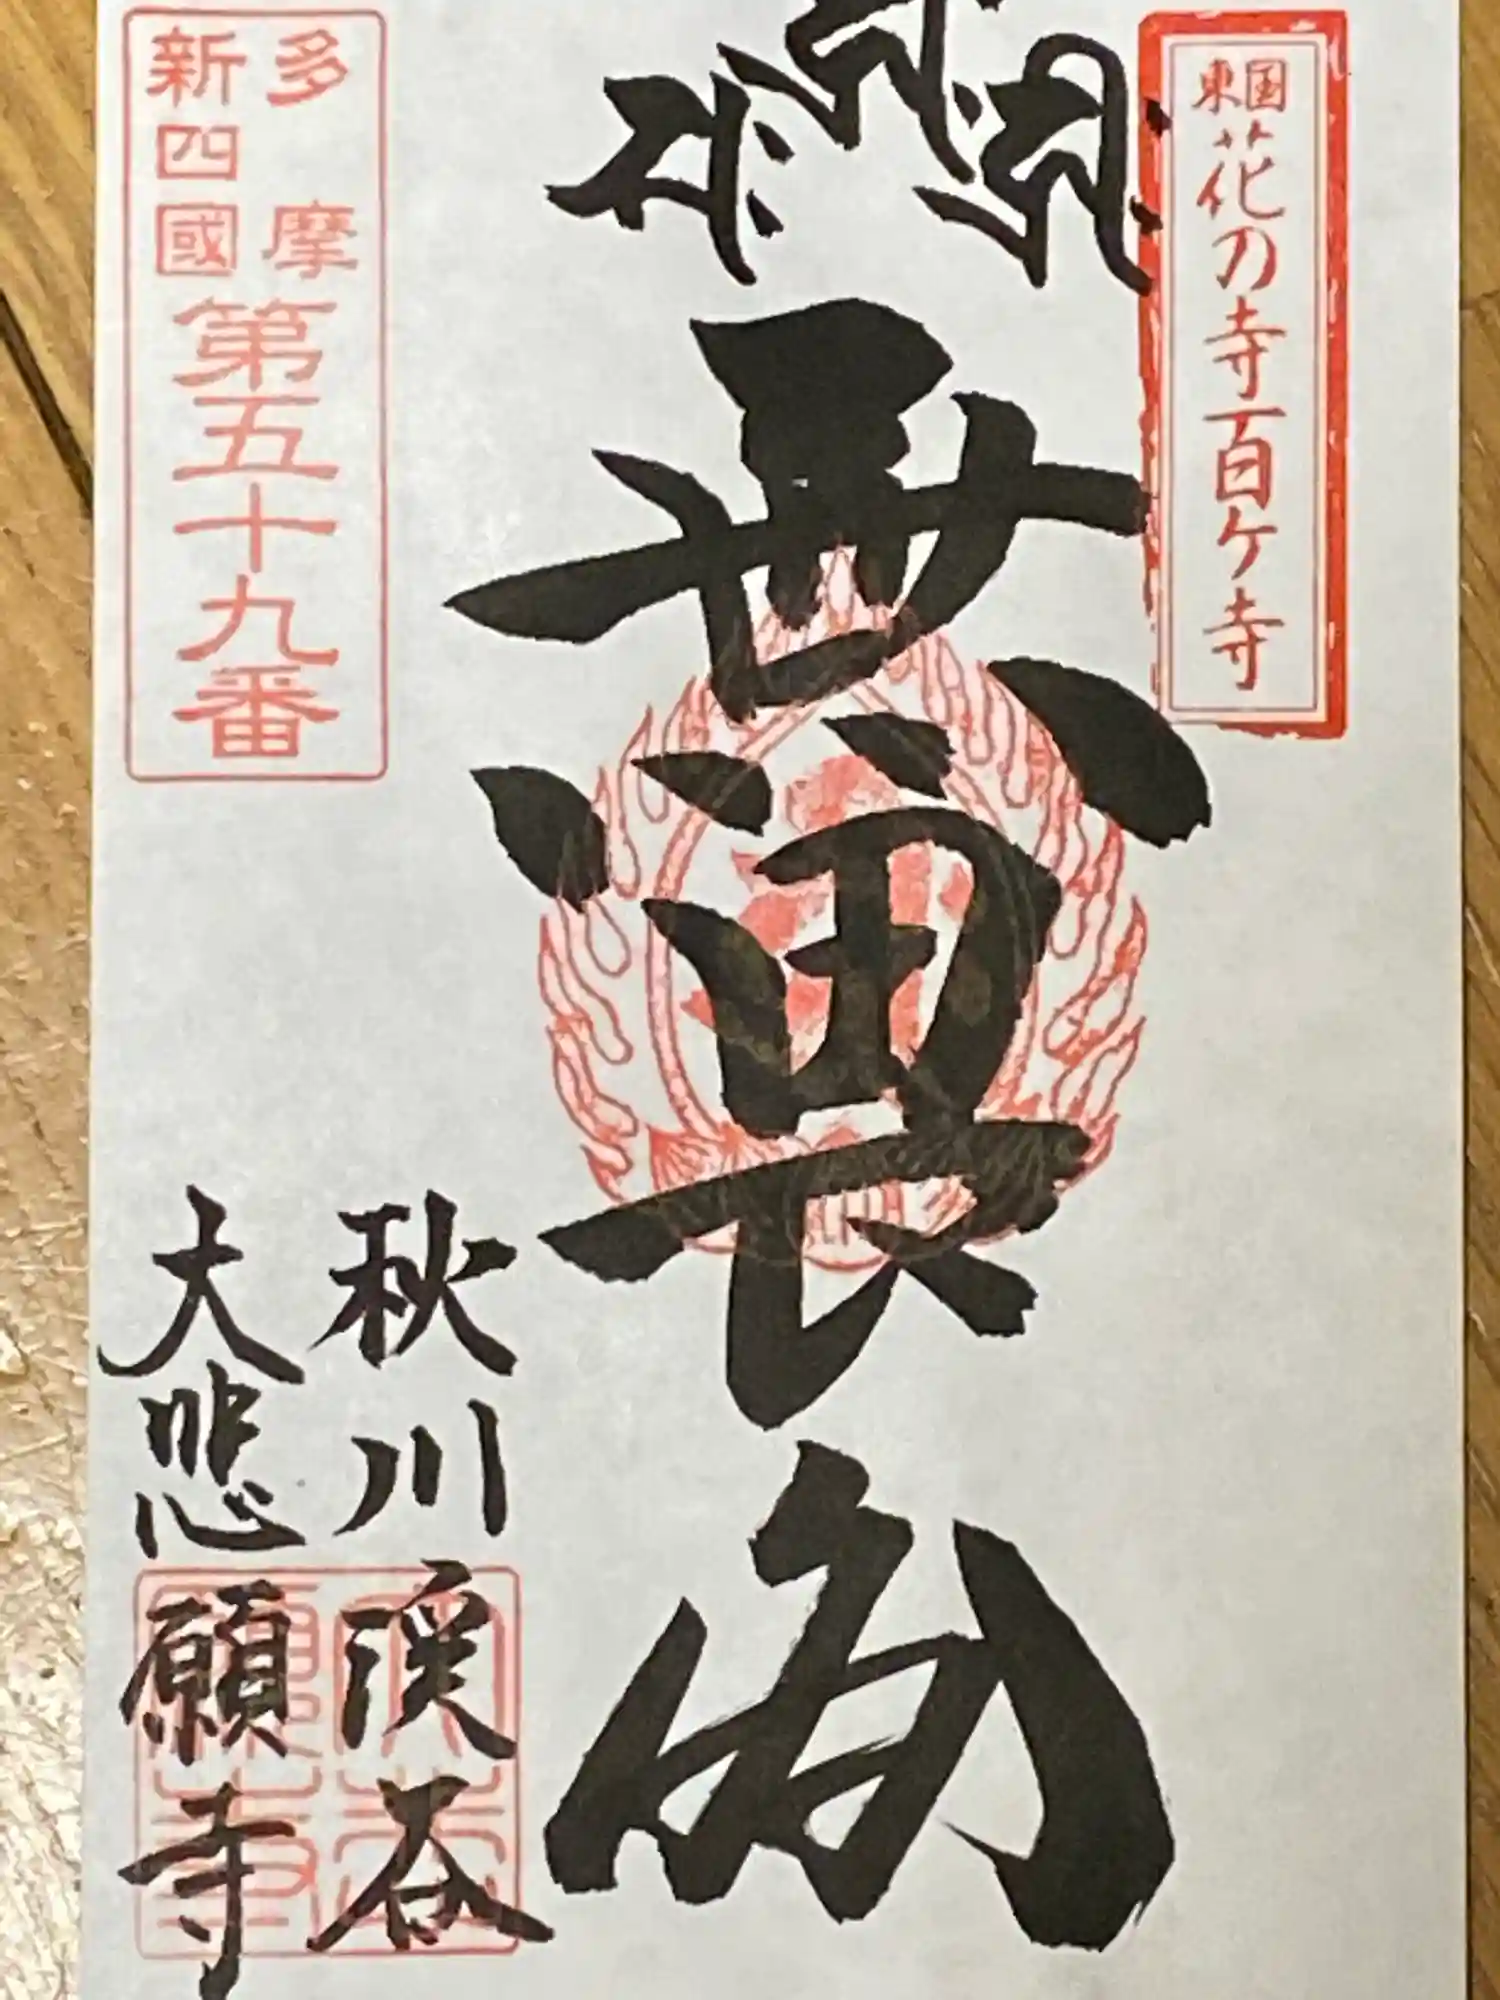 東国花の寺百ケ寺
無畏閣
多摩
新四國
第五十九番
秋川渓谷
大悲願寺